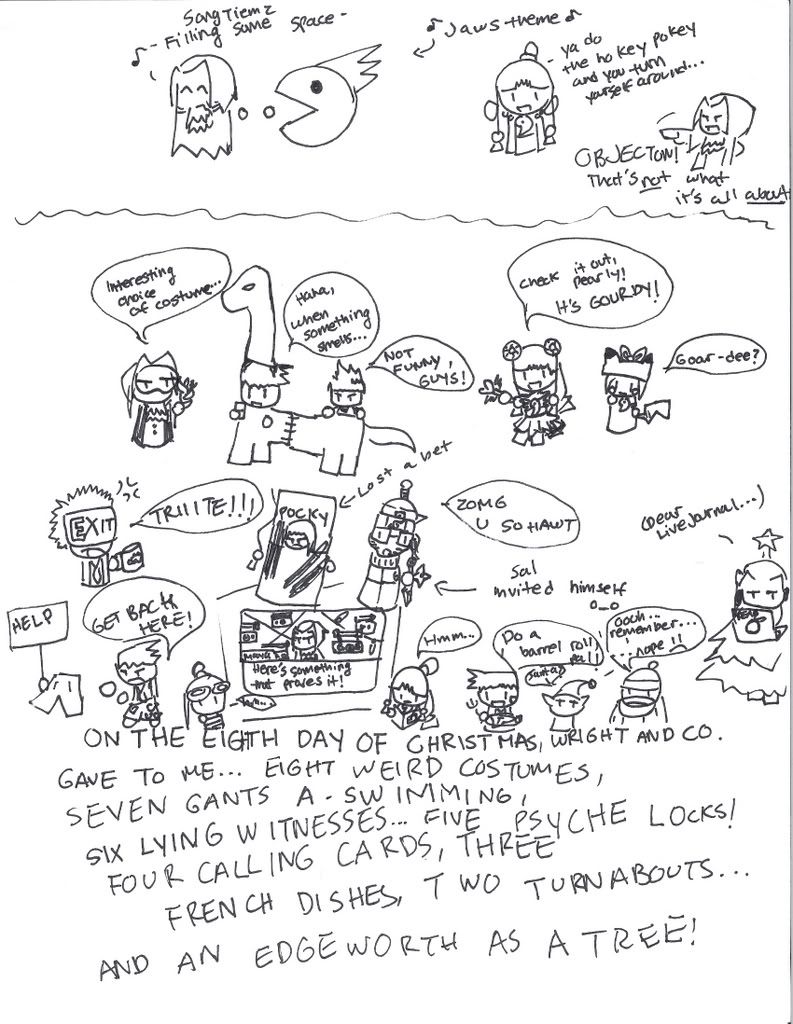 SongTiemz
♪- Filling some space -
♪ Jaws theme ♪
- ya do
the hokey pokey
and you turn
yourself around...
OBJECTON!
That's not what
it's all about
Interesting
choice
of costume...
Haha,
when
something
smells...
NOT
FUNNY,
GUYS!
Check it out,
Pearly!
It's GOURDY!
Goar-dee?
EXIT
TRIIITE!!!
POCKY
Lost a bet
ZOMG
U SO HAWT
Sal
invited himself
o_o
(Dear
LiveJournal...)
READ
HELP
GET BACK
HERE!
Here's something
that proves it!
Hmm...
Do a
barrel roll
Santa?
Oooh...
remember...
...nope!!
ON THE EIGHTH DAY OF CHRISTMAS, WRIGHT AND CO.
GAVE TO ME... EIGHT WEIRD COSTUMES,
SEVEN GANTS A-SWIMMING,
SIX LYING WITNESSES... FIVE PSYCHE LOCKS!
FOUR CALLING CARDS, THREE
FRENCH DISHES, TWO TURNABOUTS...
AND AN EDGEWORTH AS A TREE!